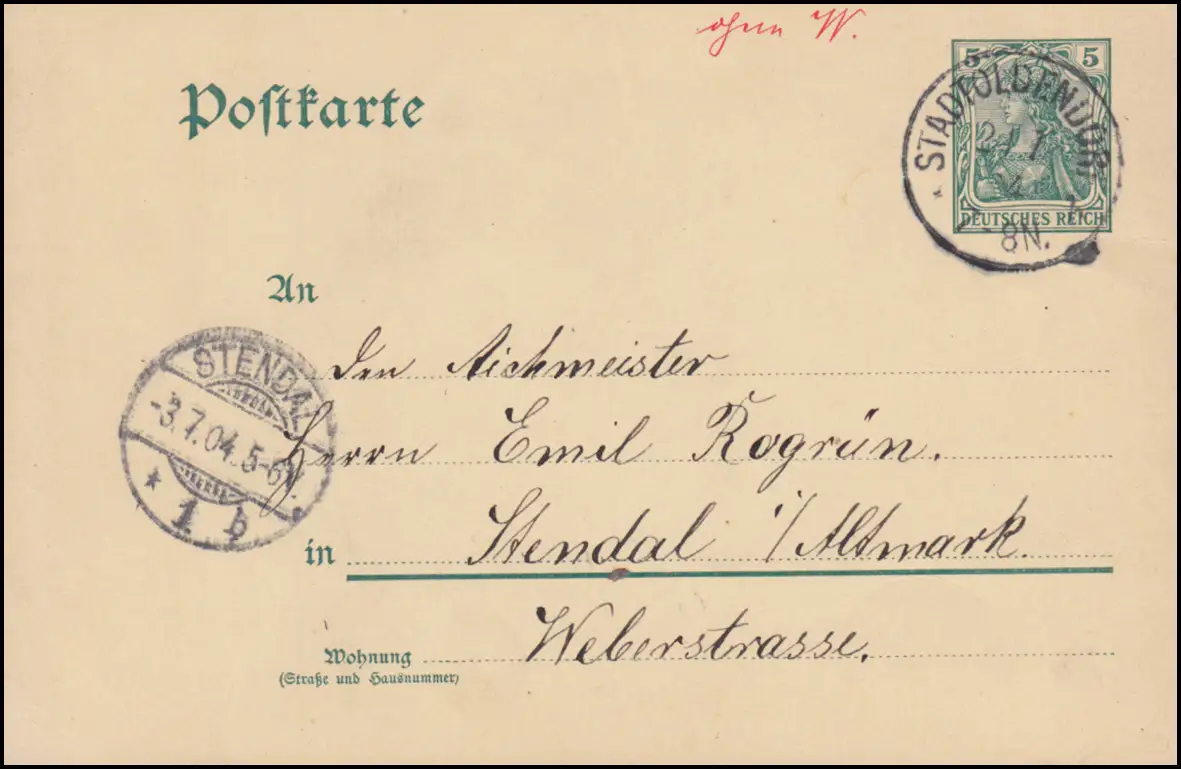 ohne W.
Postkarte
5 5
DEUTSCHES REICH
STADTOLDENDORF
8N.
An
STENDAL
-3.7.04. 5-6N.
* 1 b
Den Aichmeister
Herrn Emil Rogrün.
in Stendal i/Altmark.
Weberstrasse.
Wohnung
(Straße und Hausnummer)